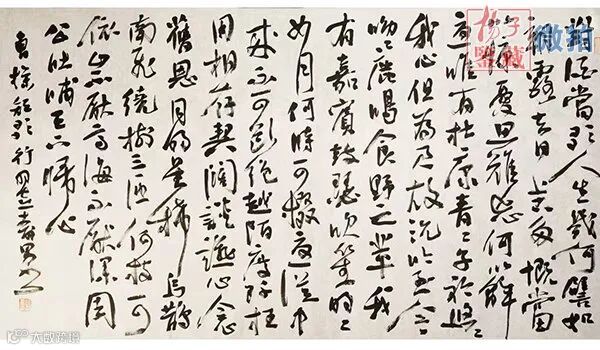 對酒當歌人生幾何譬如
朝露去日苦多慨當
以慷憂思難忘何以解
憂唯有杜康青〻子衿悠〻
我心但為君故沉吟至今
呦〻鹿鳴食野之苹我
有嘉賓鼓瑟吹笙明〻
如月何時可掇憂從中
來不可斷絕越陌度阡枉
用相存契闊談讌心念
舊恩月明星稀烏鵲
南飛繞樹三匝何枝可
依山不厭高海不厭深周
公吐哺天下歸心
曹操短歌行
鑒藏
微拍
大歐跨境